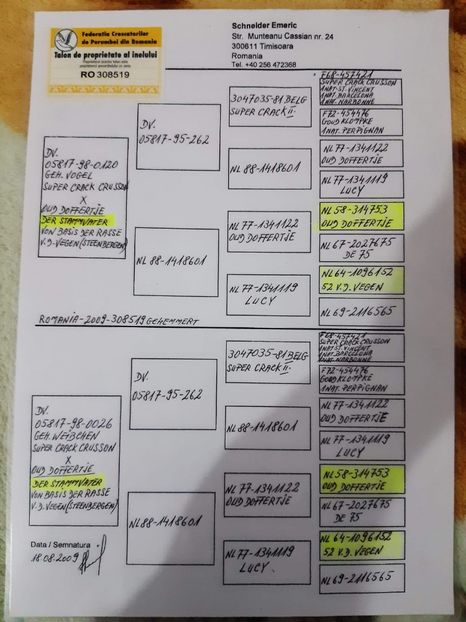 Federatia Crescatorilor
de Porumbei din Romania
Talon de proprietate al inelului
RO 308519
Schneider Emeric
Str. Munteanu Cassian nr. 24
300611 Timisoara
Romania
Tel. +40 256 472368
DV.
05817-98-0120
GEH. VOGEL
SUPER CRACK CRUSSON
X
OUD DOFFERTJE
DER STAMMVATER
VON BASIS DER RASSE
V.D. VEGEN (STEENBERGEN)
DV.
05817-95-262
NL 88-1418601
3047035-81 BELG
SUPER CRACK II.
NL 88-1418601
NL 77-1341122
OUD DOFFERTJE
NL 77-1341119
LUCY
F68-457421
SUPER CRACK CRUSSON
ANAT. ST. VINCENT
ANAT. BARCELONA
ANAT. NARBONNE
F72-454476
GOUD KLOMPKE
1NAT. PERPIGNAN
NL 77-1341122
OUD DOFFERTJE
NL 77-1341119
LUCY
NL 58-314753
OUD DOFFERTJE
NL 67-2027675
DE 75
NL 64-1096152
52 V.D. VEGEN
NL 69-2116565
ROMANIA-2009-308519 GEHEMMERT
DV.
05817-98-0026
GEH. WEIBCHEN
SUPER CRACK CRUSSON
X
OUD DOFFERTJE
DER STAMMVATER
VON BASIS DER RASSE
V.D. VEGEN (STEENBERGEN)
DV.
05817-95-262
NL 88-1418601
3047035-81 BELG
SUPER CRACK II.
NL 88-1418601
NL 77-1341122
OUD DOFFERTJE
NL 77-1341119
LUCY.
F68-457421
SUPER CRACK CRUSSON
ANAT. ST. VINCENT
ANAT. BARCELONA
ANAT. NARBONNE
F72-454476
GOUD KLOMPKE
1NAT. PERPIGNAN
NL 77-1341122
OUD DOFFERTJE
NL 77-1341119
LUCY
NL 58-314753
OUD DOFFERTJE
NL 67-2027675
DE 75
NL 64-1096152
52 V.D. VEGEN
NL 69-2116565
Data / Semnatura
18.08.2009